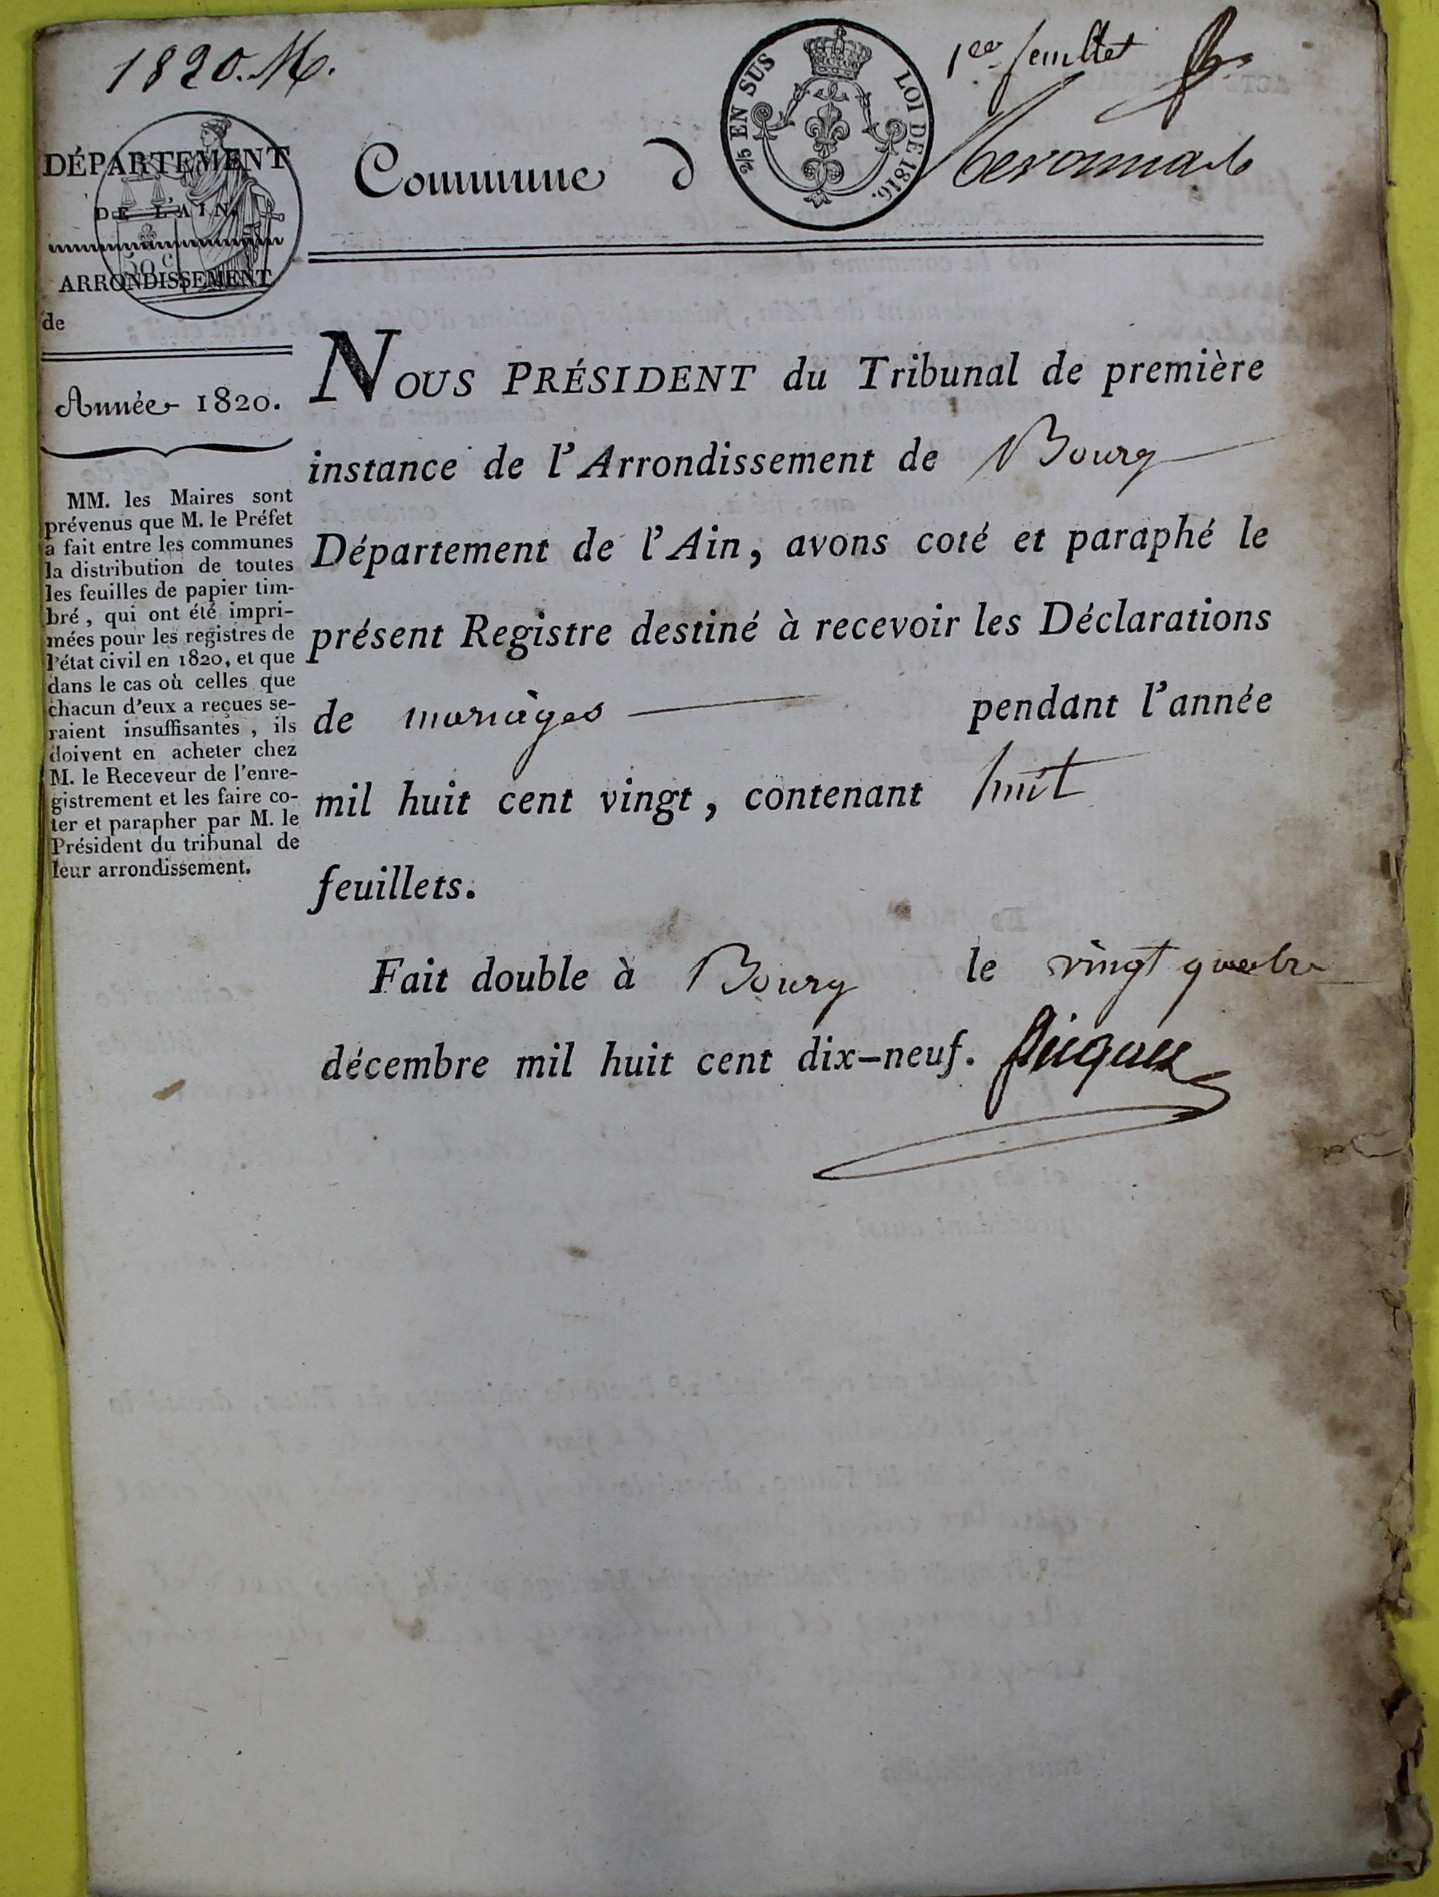 1820. M.
1er feuillet
2/5 EN SUS LOI DE 1816.
DÉPARTEMENT
DE L'AIN.
50 c
ARRONDISSEMENT
de
Commune d
Année 1820.
MM. les Maires sont
prévenus que M. le Préfet
a fait entre les communes
la distribution de toutes
les feuilles de papier tim-
bré, qui ont été impri-
mées pour les registres de
l'état civil en 1820, et que
dans le cas où celles que
chacun d'eux a reçues se-
raient insuffisantes, ils
doivent en acheter chez
M. le Receveur de l'enre-
gistrement et les faire co-
ter et parapher par M. le
Président du tribunal de
leur arrondissement.
NOUS PRÉSIDENT du Tribunal de première
instance de l'Arrondissement de Bourg
Département de l'Ain, avons coté et paraphé le
présent Registre destiné à recevoir les Déclarations
de mariages pendant l'année
mil huit cent vingt, contenant huit
feuillets.
Fait double à Bourg le vingt quatre
décembre mil huit cent dix-neuf.